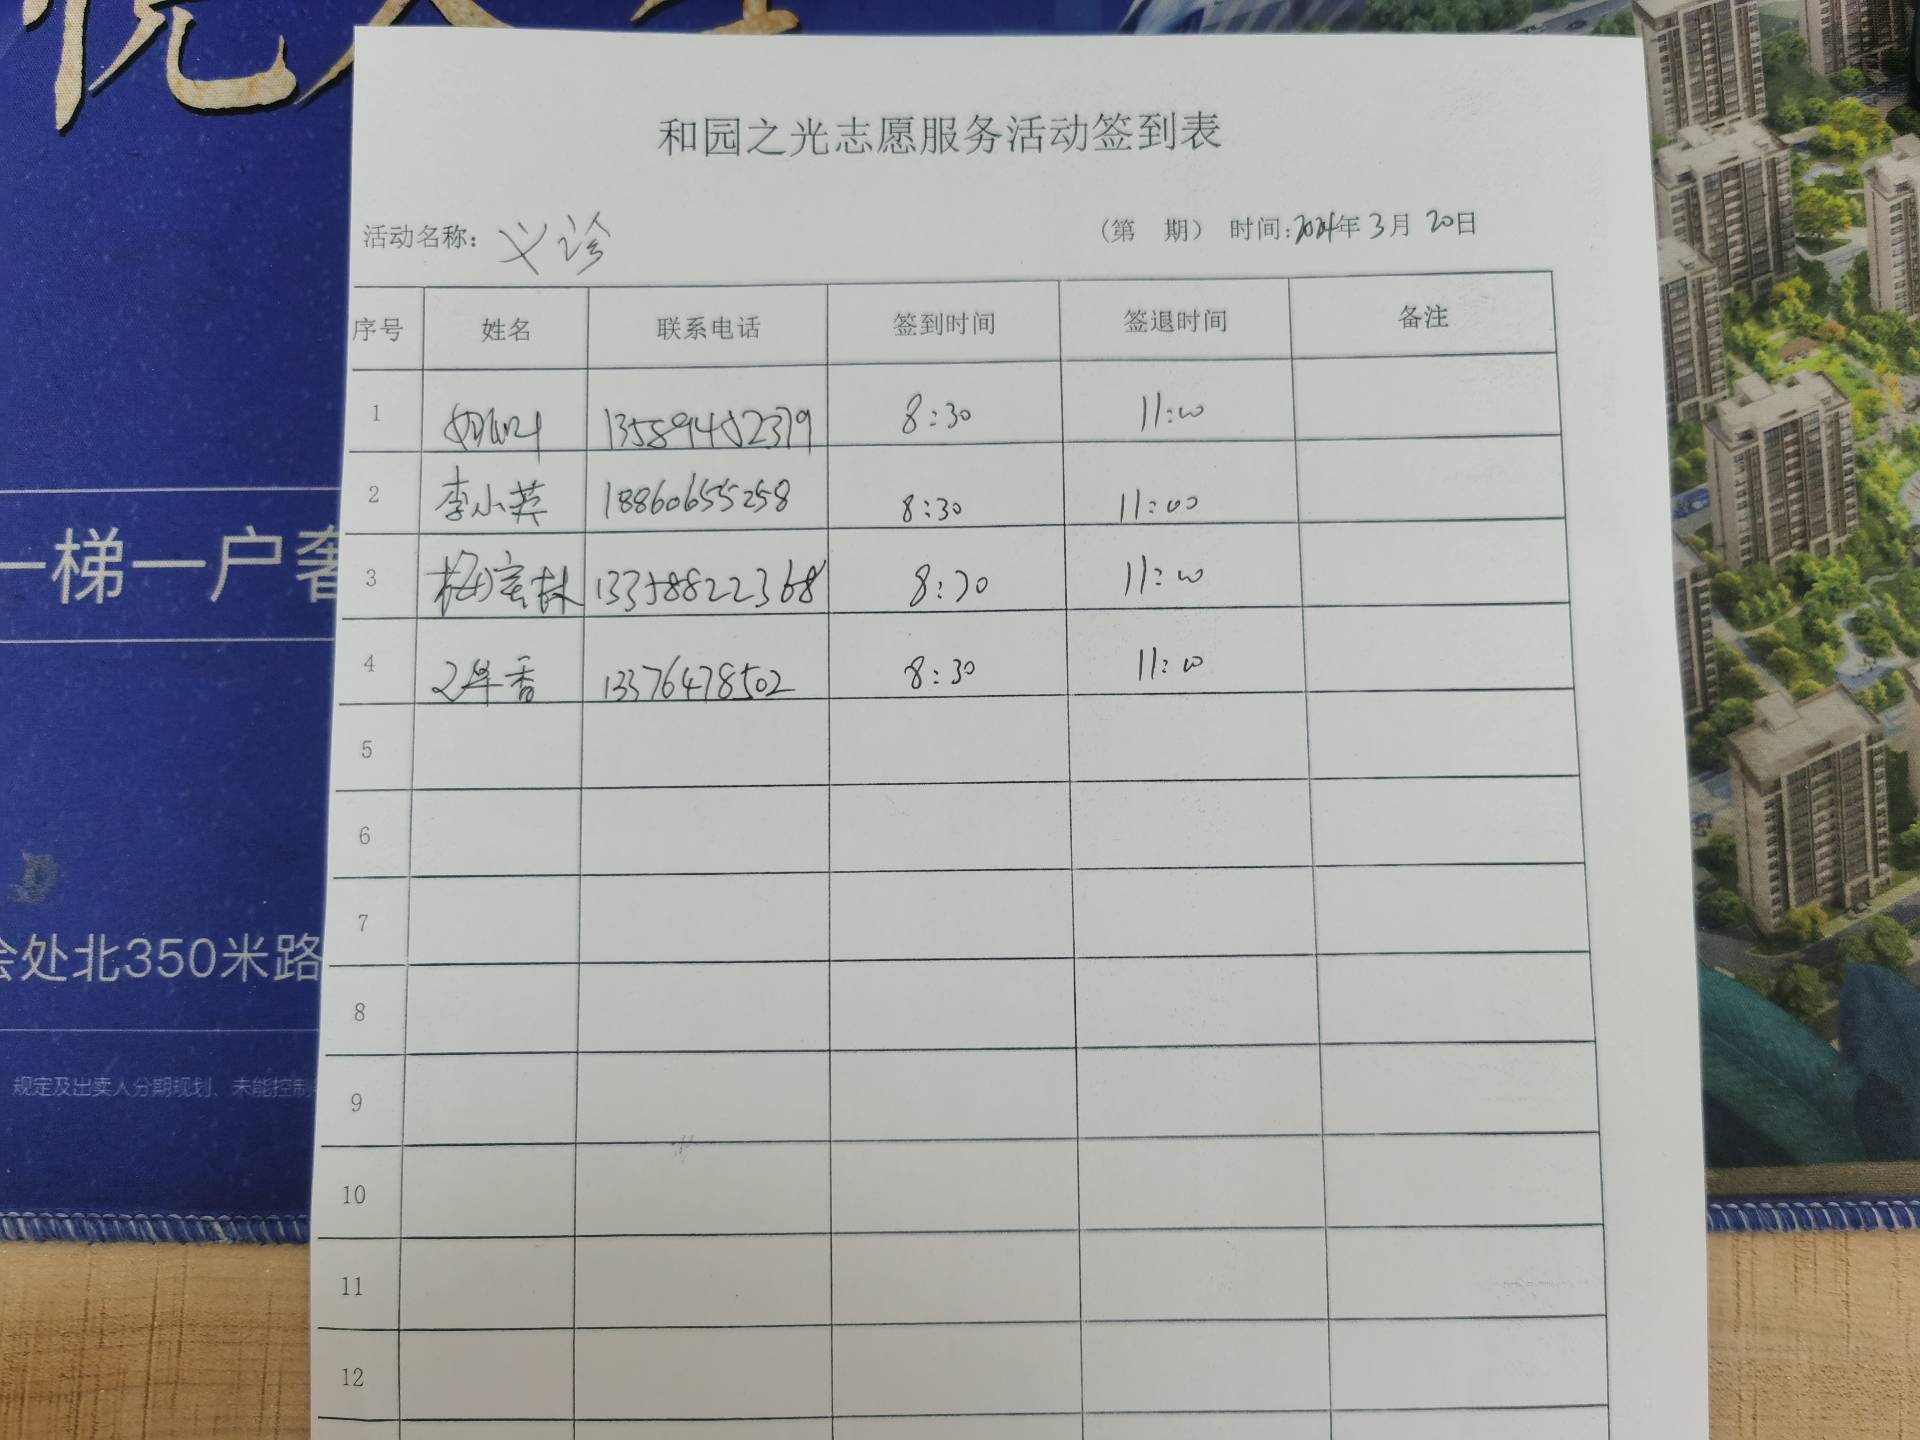 一梯一户奢
会处北350米路
规定及出卖人分期规划、未能控制
和园之光志愿服务活动签到表
活动名称：义诊 （第 期） 时间:2024年3月20日
序号 姓名 联系电话 签到时间 签退时间 备注
1 13589452379 8:30 11:00
2 李小英 18860655258 8:30 11:00
3 13358822368 8:30 11:00
4 13376478502 8:30 11:00
5
6
7
8
9
10
11
12